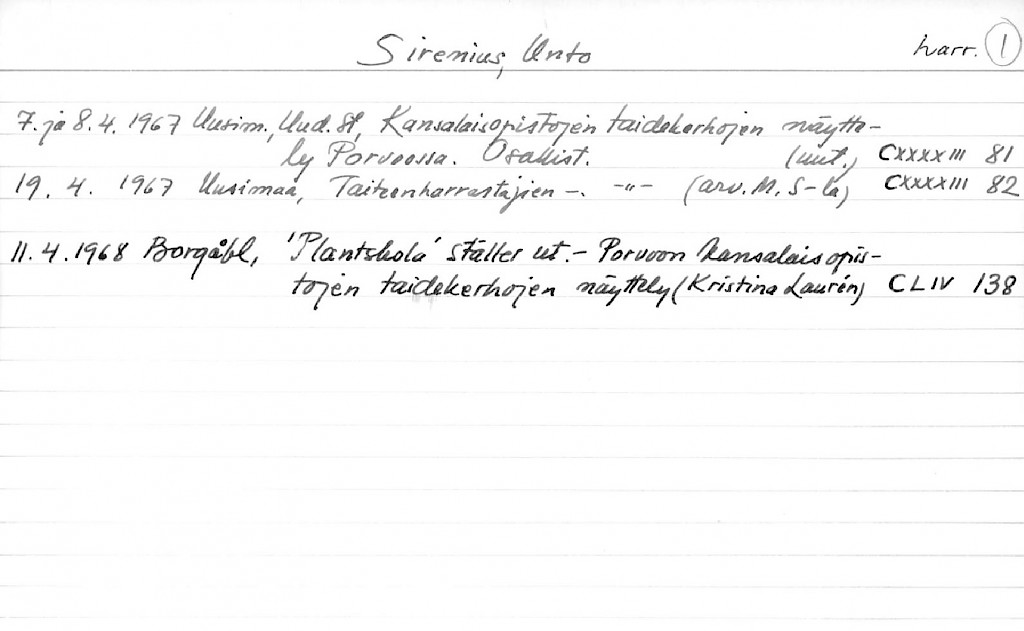 Sirenius, Unto harr. 1
7. ja 8.4. 1967 Uusim., Uud. St, Kansalaisopistojen taidekerhojen näytte-
ly Porvoossa. Osallist. (uut.) CXXXXIII 81
19. 4. 1967 Uusimaa, Taiteenharrastajien -. -"- (arv. M. S-la) CXXXXIII 82
11.4.1968 Borgåbl, 'Plantskola' ställer ut. - Porvoon kansalaisopis-
tojen taidekerhojen näyttely (Kristina Laurén) CLIV 138